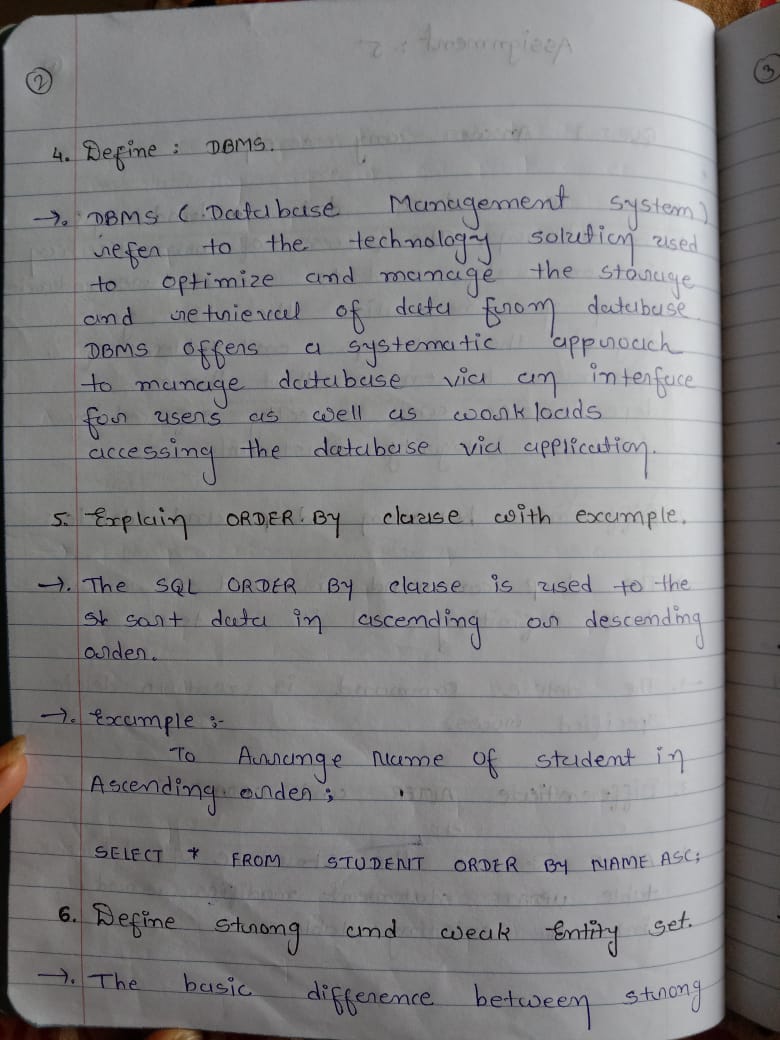 2
3
4. Define : DBMS.
→. DBMS ( Database Management system)
refer to the technology solution used
to optimize and manage the storage
and retrieval of data from database
DBMS offers a systematic approach
to manage database via an interface
for users as well as workloads
accessing the database via application.
5. Explain ORDER BY clause with example.
→. The SQL ORDER BY clause is used to the
sort data in ascending or descending
order.
→. Example :-
To Arrange name of student in
Ascending order ;
SELECT * FROM STUDENT ORDER BY NAME ASC;
6. Define strong and weak Entity set.
→. The basic difference between strong